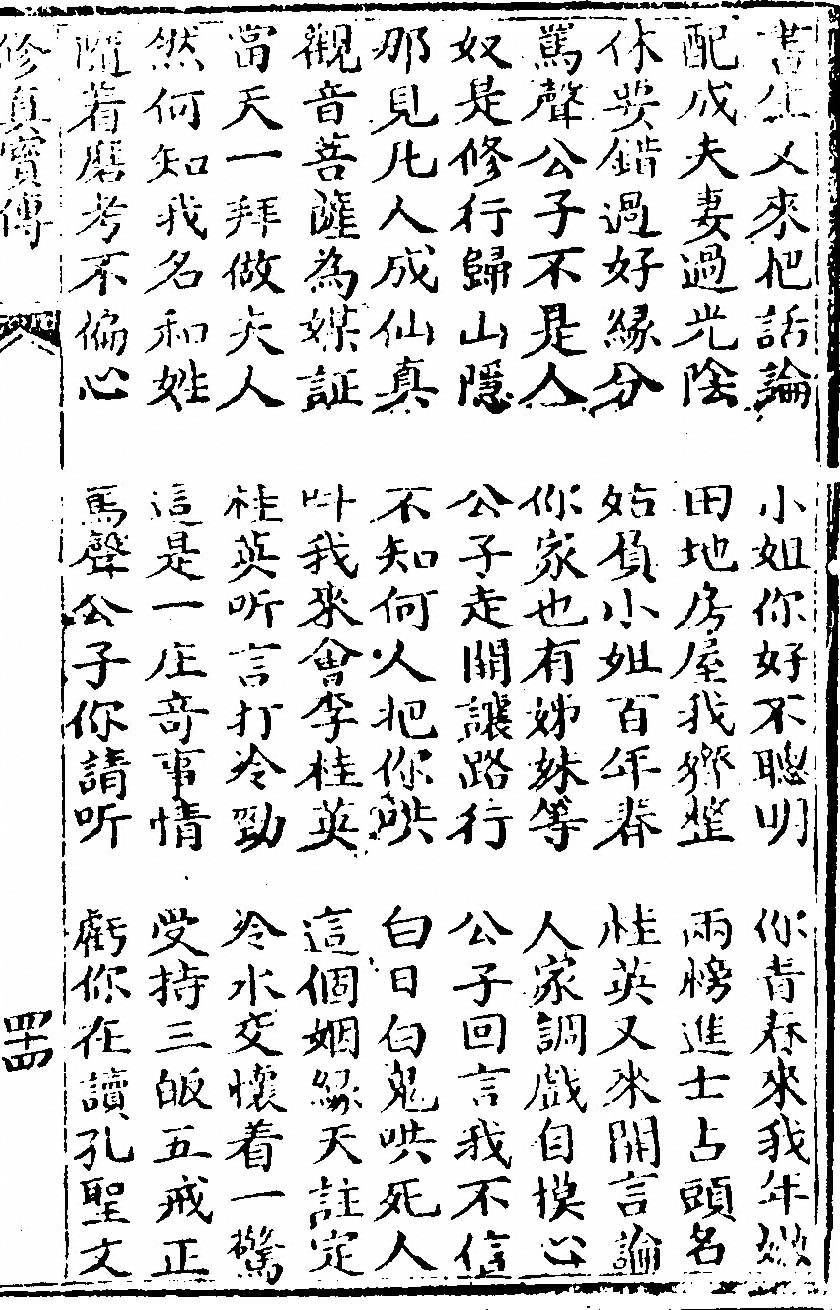 書生又來把話論 小姐你好不聰明 你青春來我年嫩
配成夫妻過光陰 田地房屋我齊整 兩榜進士占頭名
休要錯過好緣分 姑負小姐百年春 桂英又來開言論
罵聲公子不是人 你家也有姊妹等 人家調戲自摸心
奴是修行歸山隱 公子走開讓路行 公子回言我不信
那見凡人成仙真 不知何人把你哄 白日白鬼哄死人
觀音菩薩為媒証 叫我來會李桂英 這個姻緣天註定
當天一拜做夫人 桂英听言打冷勁 冷水交懷着一驚
然何知我名和姓 這是一庄奇事情 受持三皈五戒正
隨着磨考不偏心 罵聲公子你請听 虧你在讀孔聖文
修真寶傳 四十四